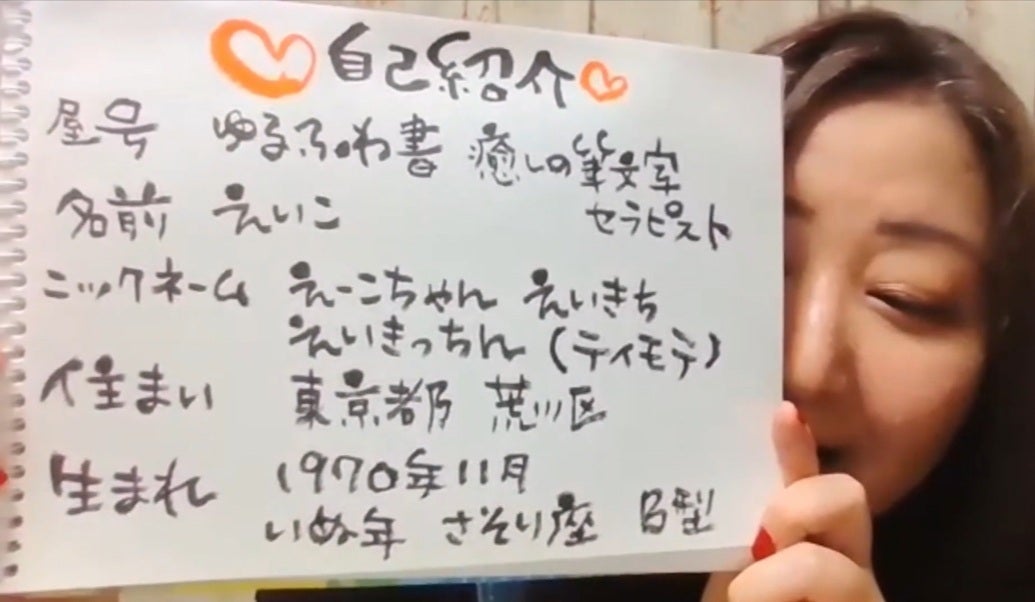 自己紹介
屋号 ゆるふわ書 癒しの筆文字
セラピスト
名前 えいこ
ニックネーム えーこちゃん えいきち
えいきっちん (ティモテ)
住まい 東京都 荒川区
生まれ 1970年11月
いぬ年 さそり座 B型